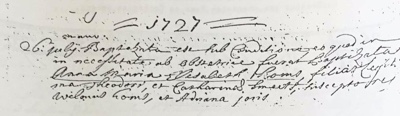 1727
6 july Baptizata est sub Conditione eo quod in
in necessitate ab obstetrice fuerat Baptizata
Anna Maria Elisabeth Coms, filia Legiti
ma Theodori, et Catharina Smeets, susceptores
Wilmus Coms, et Adriana Joris.